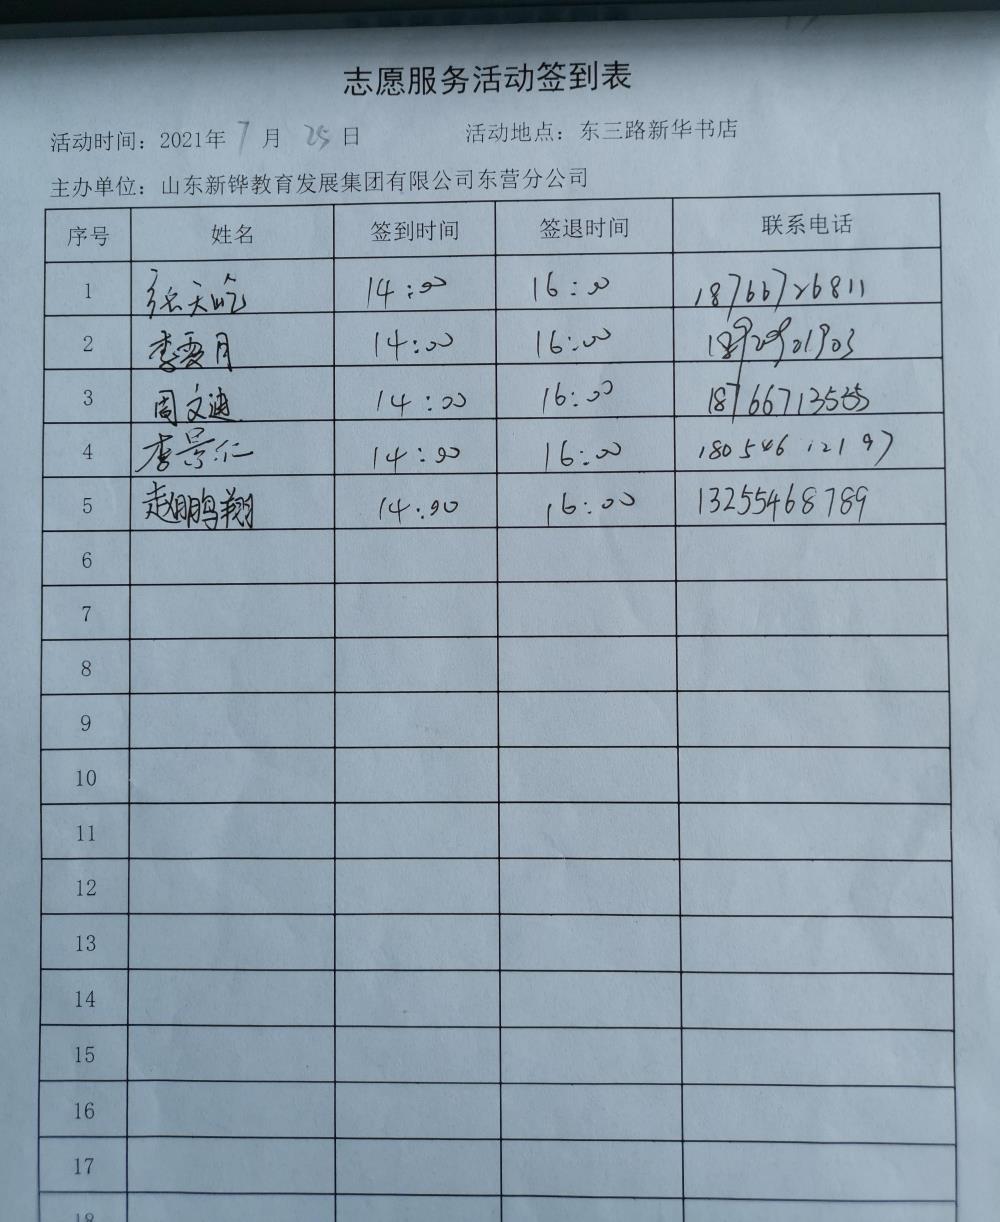 志愿服务活动签到表
活动时间：2021年 7 月 25 日 活动地点：东三路新华书店
主办单位：山东新铧教育发展集团有限公司东营分公司
序号 姓名 签到时间 签退时间 联系电话
1 张天屹 14:00 16:00 18766726811
2 李雯月 14:00 16:00
3 周文迪 14:00 16:00
4 李景仁 14:00 16:00 18054612197
5 赵鹏翔 14:00 16:00 13255468789
6
7
8
9
10
11
12
13
14
15
16
17
18